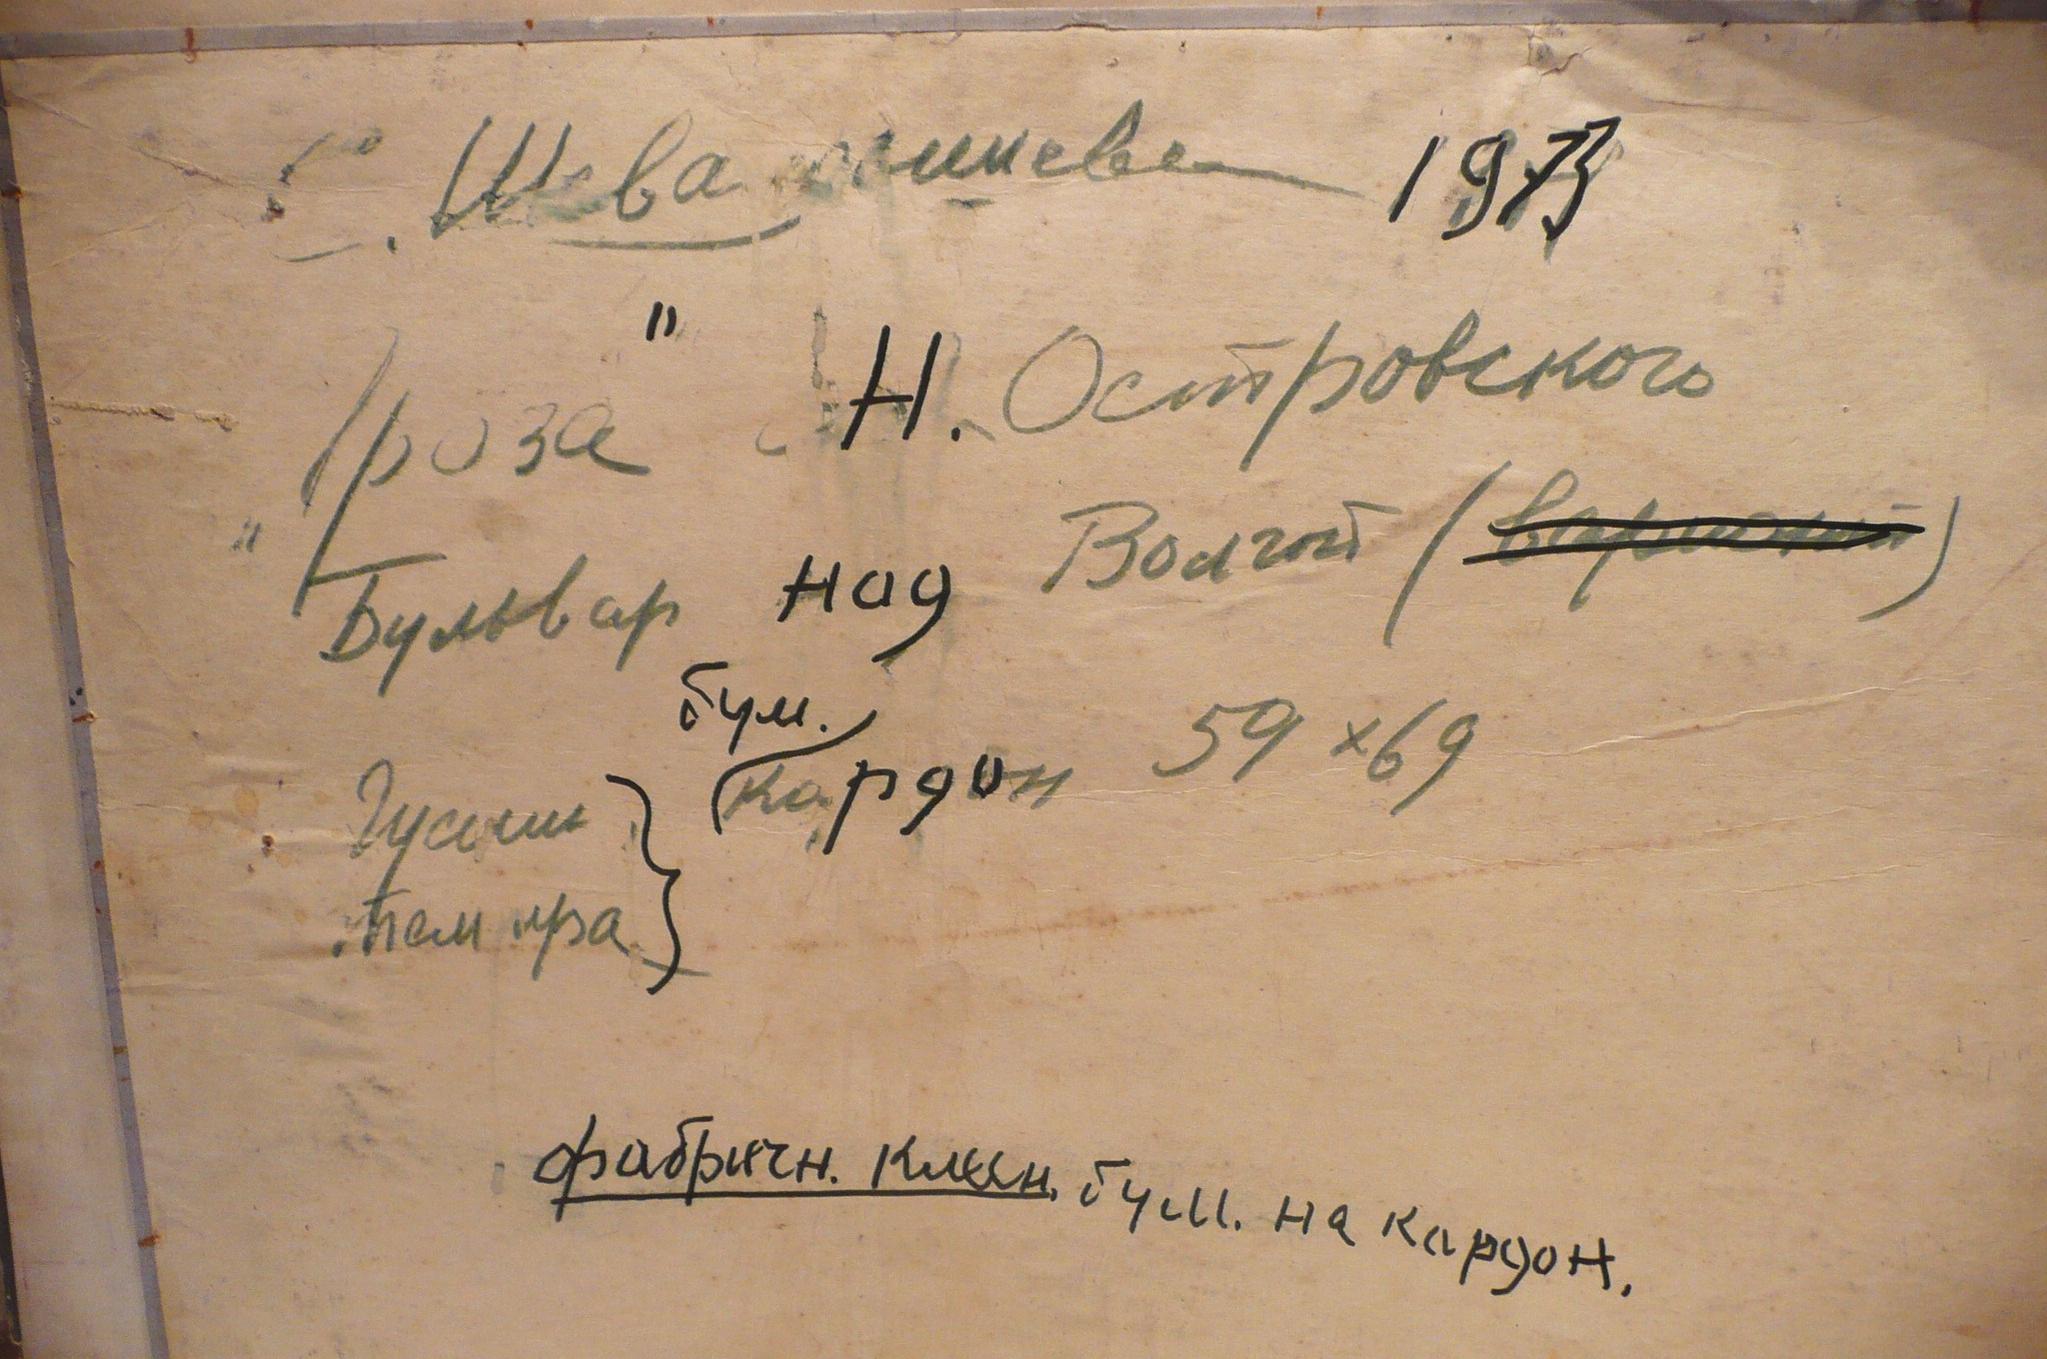 1973
"Гроза" Н. Островского
"Бульвар над Волгой (вариант)
бум.
Картон 59 x 69
Гуашь
темпра
фабричн. клеян. бум. на картон.